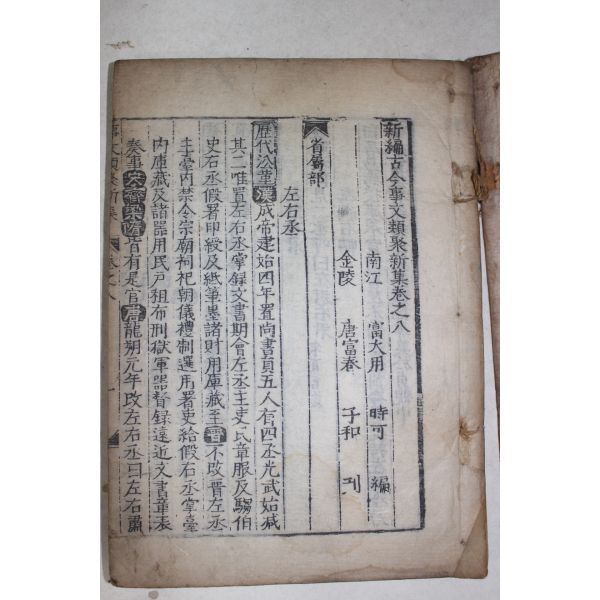 新編古今事文類聚新集卷之八
南江 富大用 時可 編
金陵 唐富春 子和 刊
省屬部
左右丞
歷代沿革 漢成帝建始四年置尚書員五人有四丞光武始减
其二唯置左右丞掌錄文書期會左丞主吏民章服及騶伯
史右丞假署印綬及紙筆墨諸財用庫藏至晉不改晉左丞
主臺內禁令宗廟祠祀朝儀禮制選用署吏給假右丞掌臺
內庫藏及諸器用民戶租布刑獄軍器督錄遠近文書章表
奏事宋齊梁隋皆有是官唐龍朔元年改左右丞曰左右肅
事文類聚新集 卷之八